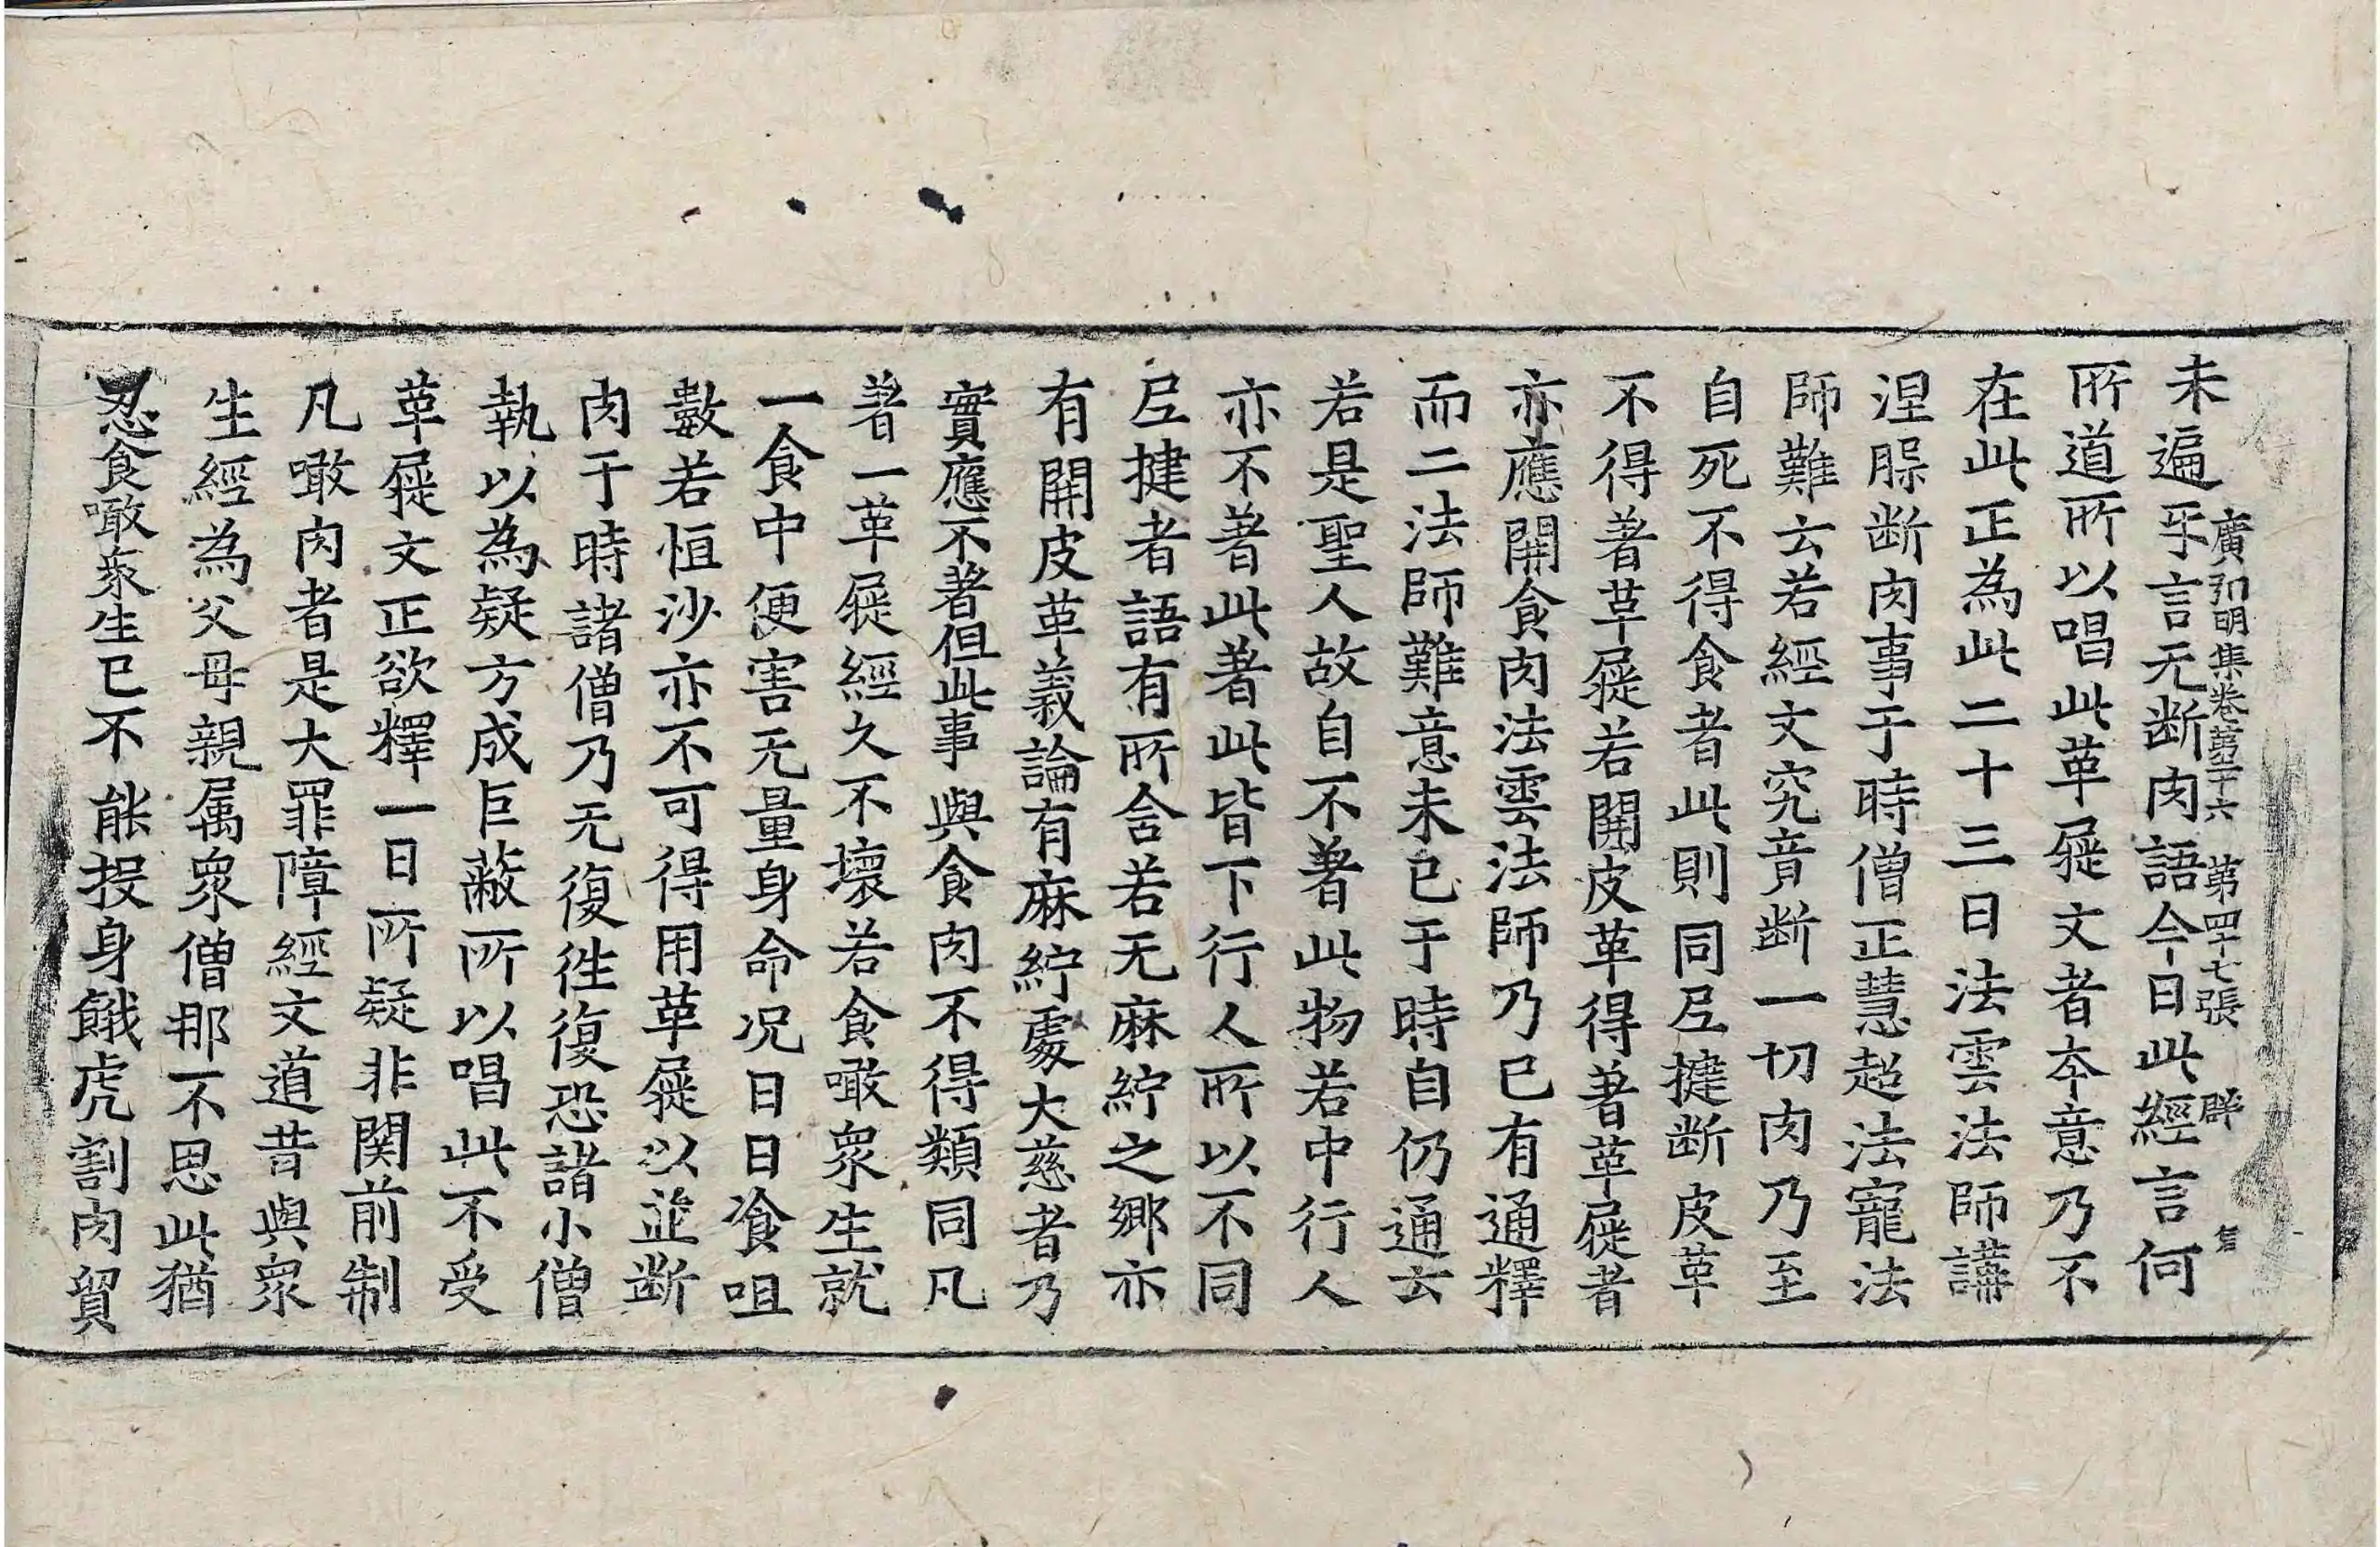 廣弘明集卷第二十六 第四十七張 群
未遍乎言无断肉語今日此經言何
所道所以唱此革屣文者夲意乃不
在此正為此二十三日法雲法師講
涅脵断肉事于時僧正慧超法寵法
師難云若經文究竟断一切肉乃至
自死不得食者此則同𡰱揵断皮革
不得著革屣若開皮革得著革屣者
亦應開食肉法雲法師乃已有通釋
而二法師難意未已于時自仍通云
若是聖人故自不著此物若中行人
亦不著此著此皆下行人所以不同
𡰱揵者語有所含若无麻紵之鄉亦
有開皮革義論有麻紵處大慈者乃
實應不著但此事與食肉不得類同凡
著一革屣經久不壞若食噉眾生就
一食中便害无量身命况日日飡咀
數若恒沙亦不可得用革屣以並断
肉于時諸僧乃无復往復恐諸小僧
執以為疑方成巨蔽所以唱此不受
革屣文正欲釋一日所疑非関前制
凡噉肉者是大罪障經文道昔與眾
生經為父母親属眾僧那不思此猶
忍食噉衆生已不能投身餓虎割肉貿